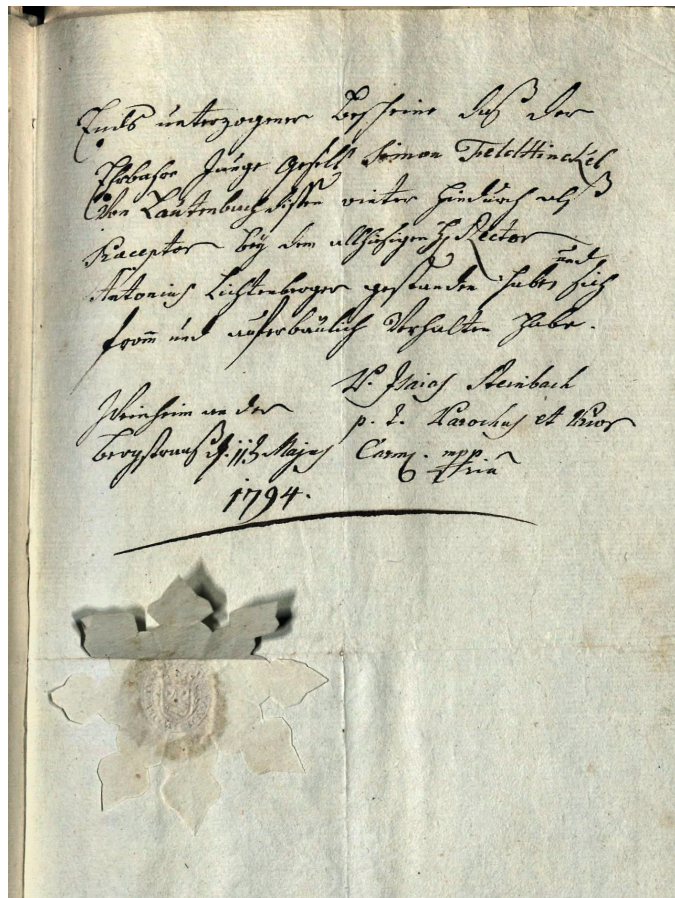 Ends unterzogener Bescheine daß der
Ehrbahre Junge Gesell Simon Feldthinckel
Von Lautenbach disen winter hindurch alß
Praceptor bey dem allhiesigen H. Rector
Antonius Lichtenberger gestanden habe, und sich
from und auferbäulich Verhalten habe.
Weinheim an der
Bergstrauß d. 11t Majus
1794.
P. Isaias Steinbach
p. t. Parochus et Prior
Carm. mpp